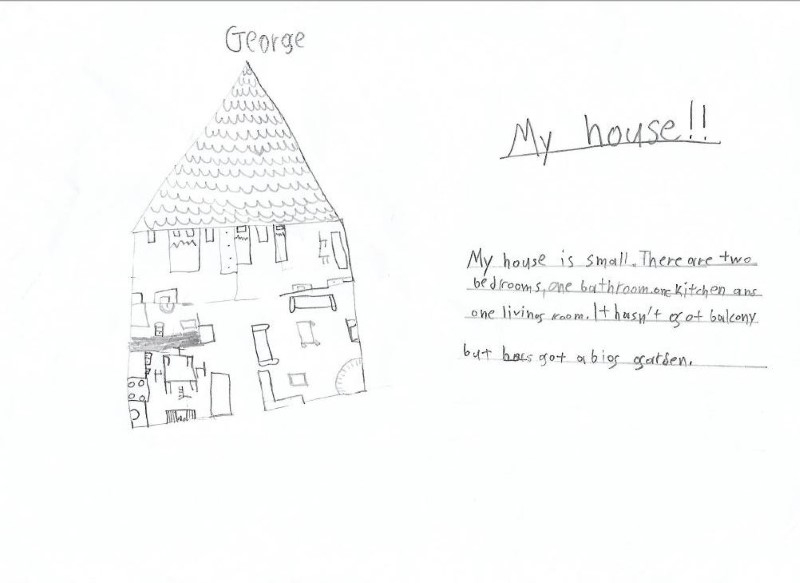 George
My house!!
My house is small. There are two
bedrooms, one bathroom. one kitchen ans
one living room. It hasn't got balcony
but has got a big garben.